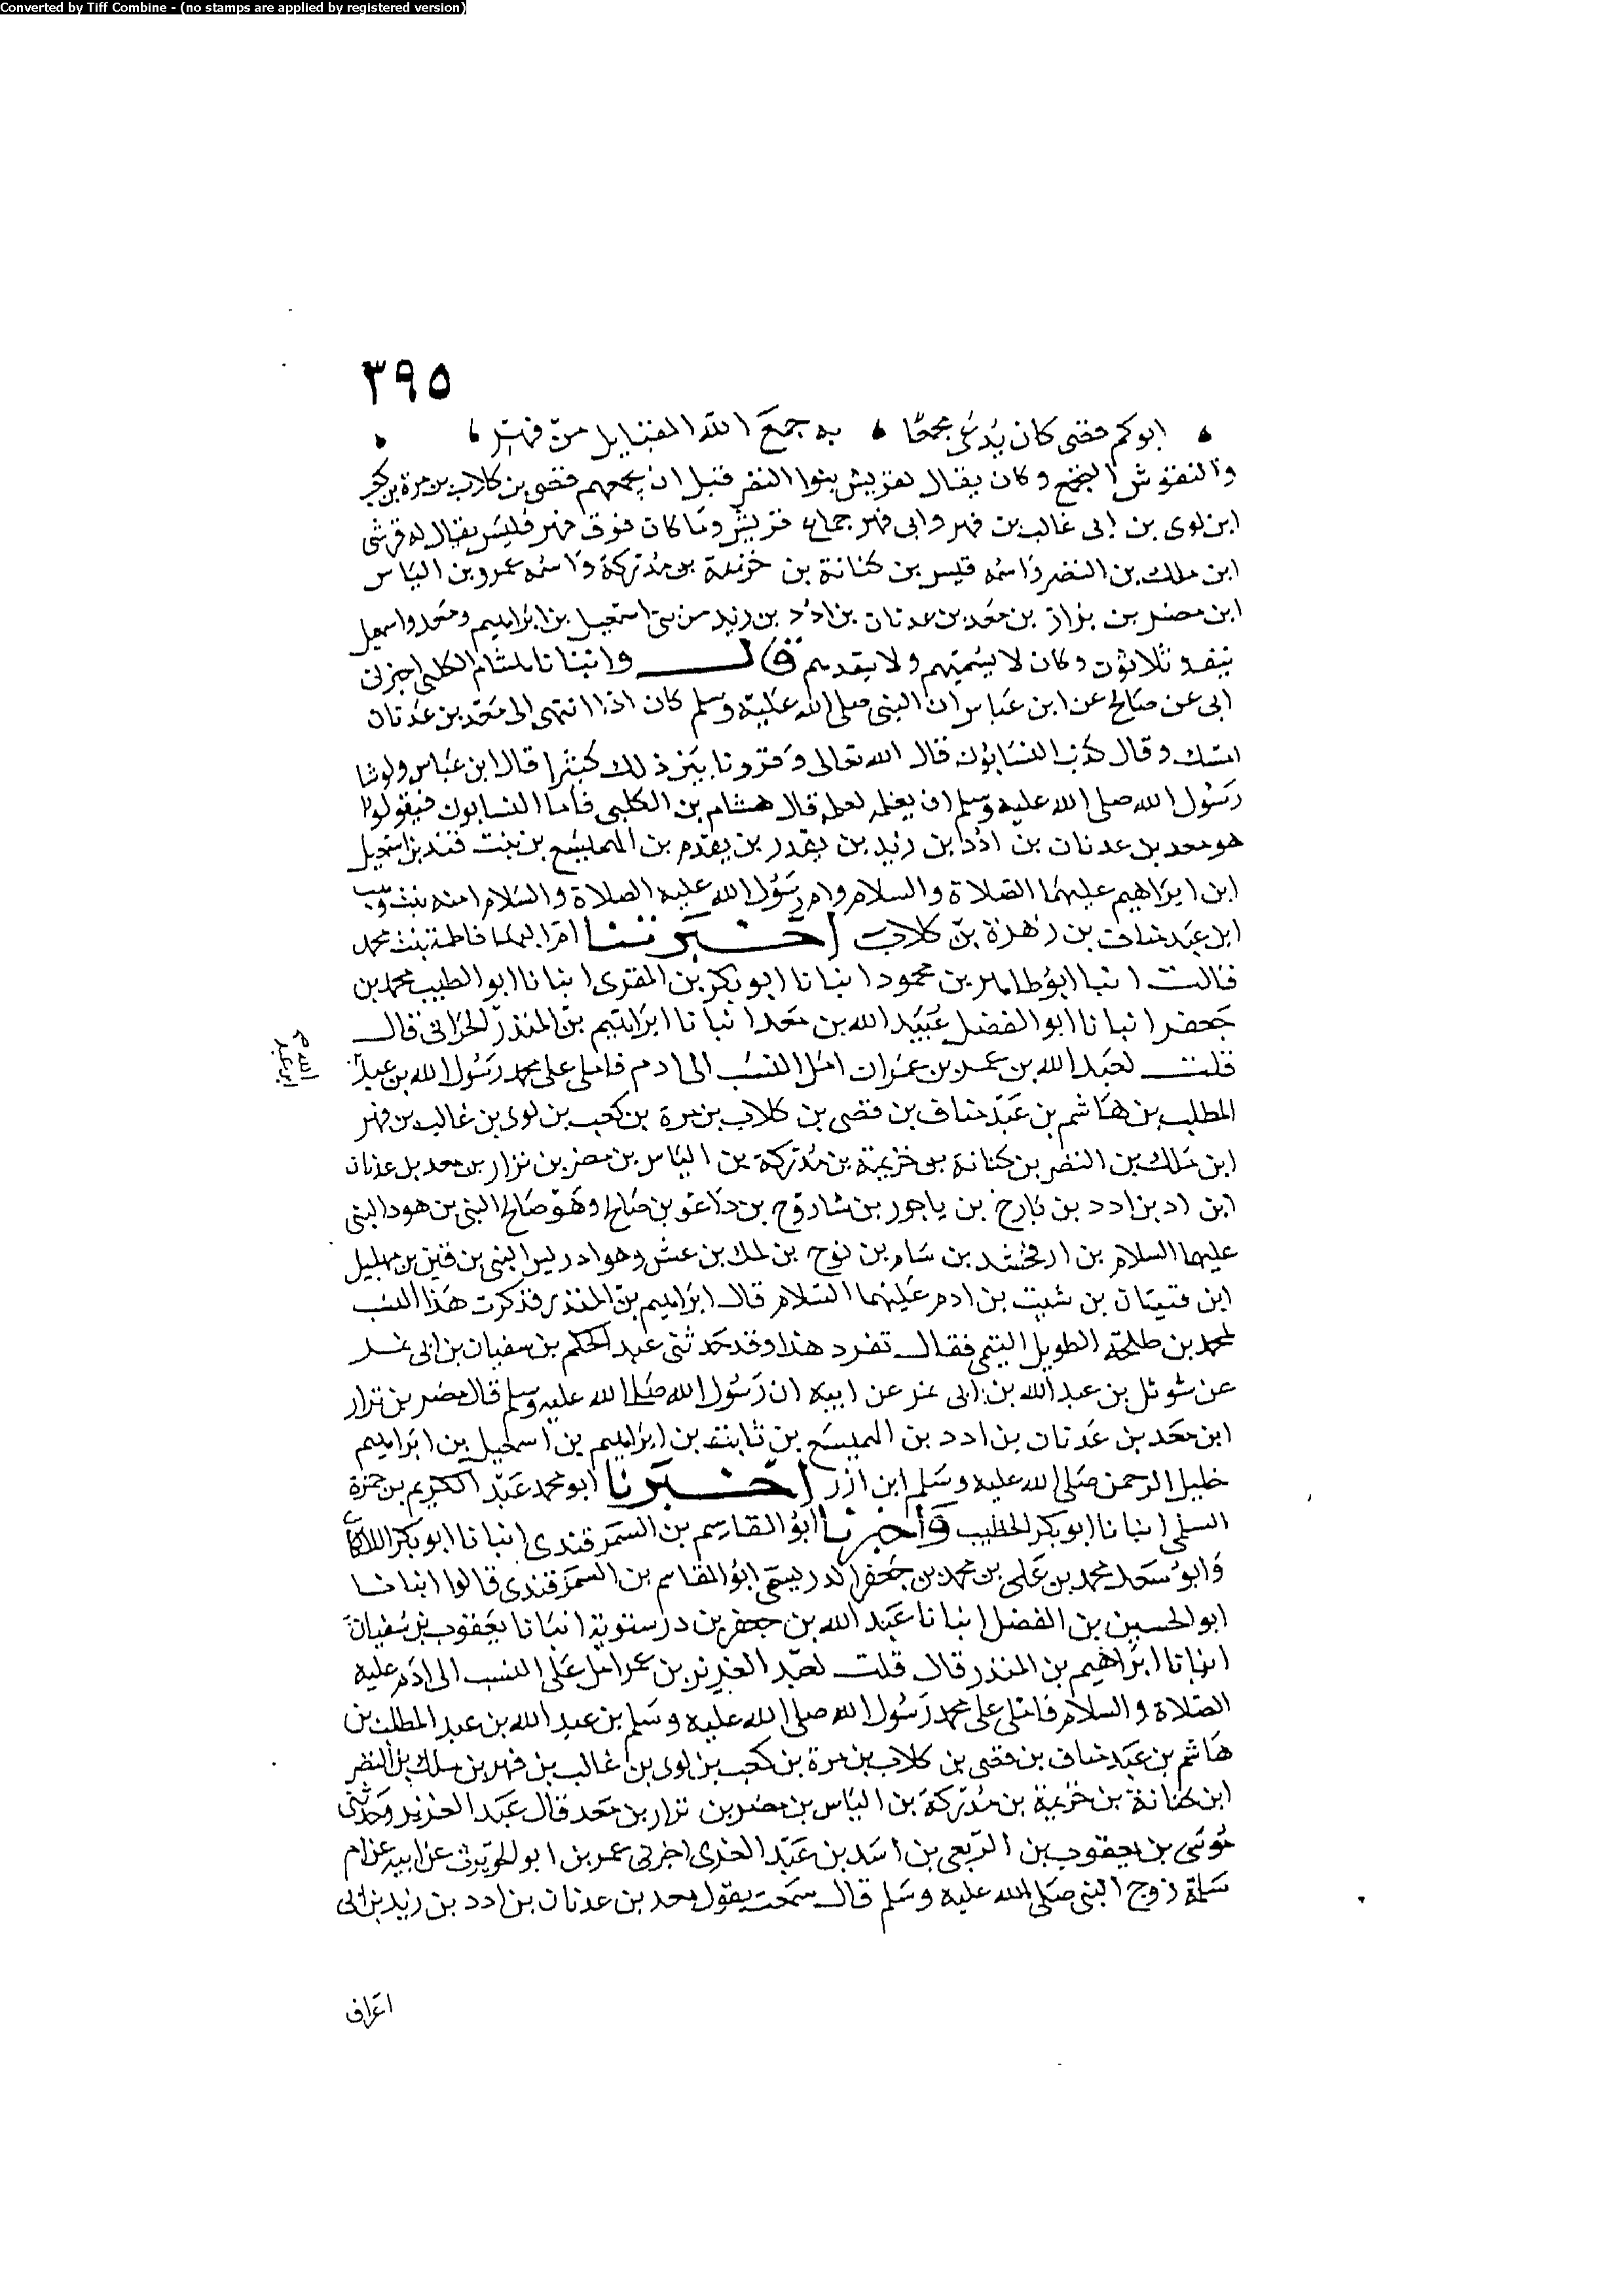 Converted by Tiff Combine - (no stamps are applied by registered version)
٣٩٥
ابوكم قصى كان يُدعَى مجمعًا به جمعَ الله القبايل من فهر
والتقوش التجمع وكان يقال لقريش بنوا النضر قبل ان يجمعهم قصى بن كلاب بن مرة بن كعب
ابن لوى بن غالب بن فهر والى فهر جماع قريش وما كان فوق فهر فليس يقال له قرشى
ابن ملك بن النضر واسمه قيس بن كنانة بن خزيمة بن مدركة واسمه عمرو بن الياس
ابن مضر بن نزار بن معد بن عدنان بن ادد بن زيد من بنى اسمعيل بن ابراهيم ومعد واسمعيل
ثلاثون وكان لا يسميهم ولا يقدمهم قال وانبانا هشام الكلبى اخبرنى
ابى عن صالح عن ابن عباس ان النبى صلى الله عليه وسلم كان اذا انتهى الى معد بن عدنان
امسك وقال كذب النسابون قال الله تعالى وقرونا بين ذلك كثيرا قال ابن عباس ولوشا
رسول الله صلى الله عليه وسلم ان يعلمه لعلمه قال هشام بن الكلبى فاما النسابون فيقولوا
هو معد بن عدنان بن ادد بن زيد بن يقدر بن يقدم بن الهميسع بن نبت قيذر بن اسمعيل
ابن ابراهيم عليهما الصلاة والسلام وام رسول الله عليه الصلاة والسلام امنه بنت وهب
ابن عبد مناف بن زهرة بن كلاب اخبرتنا ام البها فاطمة بنت محمد
قالت انبا ابو طاهر بن محمود انبانا ابو بكر بن المقرى انبانا ابو الطيب محمد بن
جعفر انبانا ابو الفضل عبيد الله بن سعد انبانا ابراهيم بن المنذر الحزامى قال
قلت لعبد الله بن عمر بن عمران امل النسب الى ادم فاملى على محمد رسول الله بن عبد
الله بن عبد
المطلب بن هاشم بن عبد مناف بن قصى بن كلاب بن مرة بن كعب بن لوى بن غالب بن فهر
ابن ملك بن النضر بن كنانة بن خزيمة بن مدركة بن الياس بن مضر بن نزار بن معد بن عدنان
ابن اد بن ادد بن تارخ بن ياجور بن شاروح بن داعو بن صالح وهو صالح النبى بن هود النبى
عليهما السلام بن ارفخشد بن سام بن نوح بن لمك بن عش وهو ادريس النبى بن قين بن مهليل
ابن قينان بن شيث بن ادم عليهما السلام قال ابراهيم بن المنذر فذكرت هذا النسب
لمحمد بن طلحة الطويل التيمى فقال تفرد هذا وقد حدثنى عبد الحكم بن سفيان بن ابى نمر
عن شريك بن عبد الله بن ابى نمر عن ابيه ان رسول الله صلى الله عليه وسلم قال مضر بن نزار
ابن معد بن عدنان بن ادد بن الهميسع بن ثابت بن ابراهيم بن اسمعيل بن ابراهيم
خليل الرحمن صلى الله عليه وسلم ابن ازر اخبرنا ابو محمد عبد الكريم بن حمزة
السلمى انبانا ابو بكر الخطيب واخبرنا ابو القاسم بن السمرقندى انبانا ابو بكر اللالكاى
وابو سعد محمد بن على بن محمد بن جعفر ابو القاسم بن السمرقندى قالوا انبانا
ابو الحسين بن الفضل انبانا عبد الله بن جعفر بن درستوية انبانا يعقوب بن سفيان
انبانا ابراهيم بن المنذر قال قلت لعبد العزيز بن عمر امل على النسب الى ادم عليه
الصلاة والسلام فاملى على محمد رسول الله صلى الله عليه وسلم بن عبد الله بن عبد المطلب بن
هاشم بن عبد مناف بن قصى بن كلاب بن مرة بن كعب بن لوى بن غالب بن فهر بن ملك بن النضر
ابن كنانة بن خزيمة بن مدركة بن الياس بن مضر بن نزار بن معد قال عبد العزيز وحدثنى
موسى بن يعقوب بن الربعى بن اسد بن عبد العزى اخبرنى عمر بن ابو الحويرث عن ابيه عن ام
سلمة زوج النبى صلى الله عليه وسلم قال سمعت يقول معد بن عدنان بن ادد بن زيد بن الى
اعراق